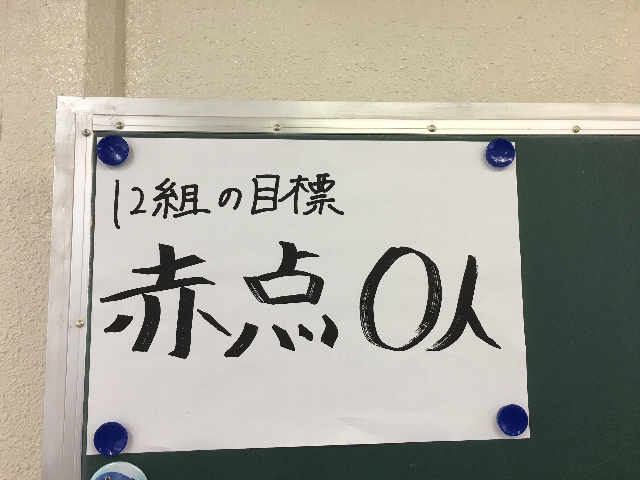 12組の目標
赤点0人